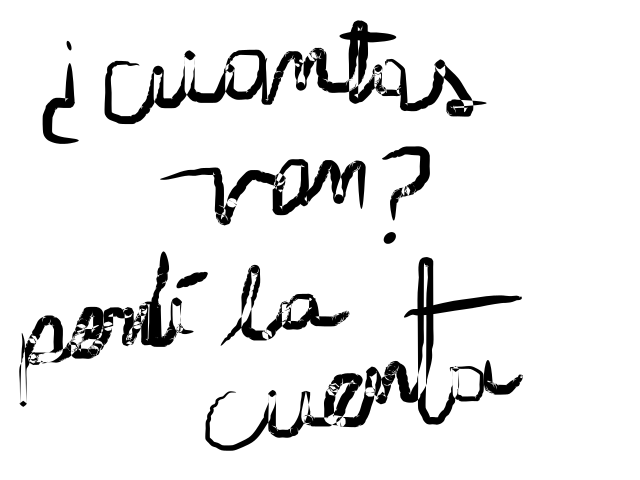 ¿cuantas
van?
perdí la
cuenta